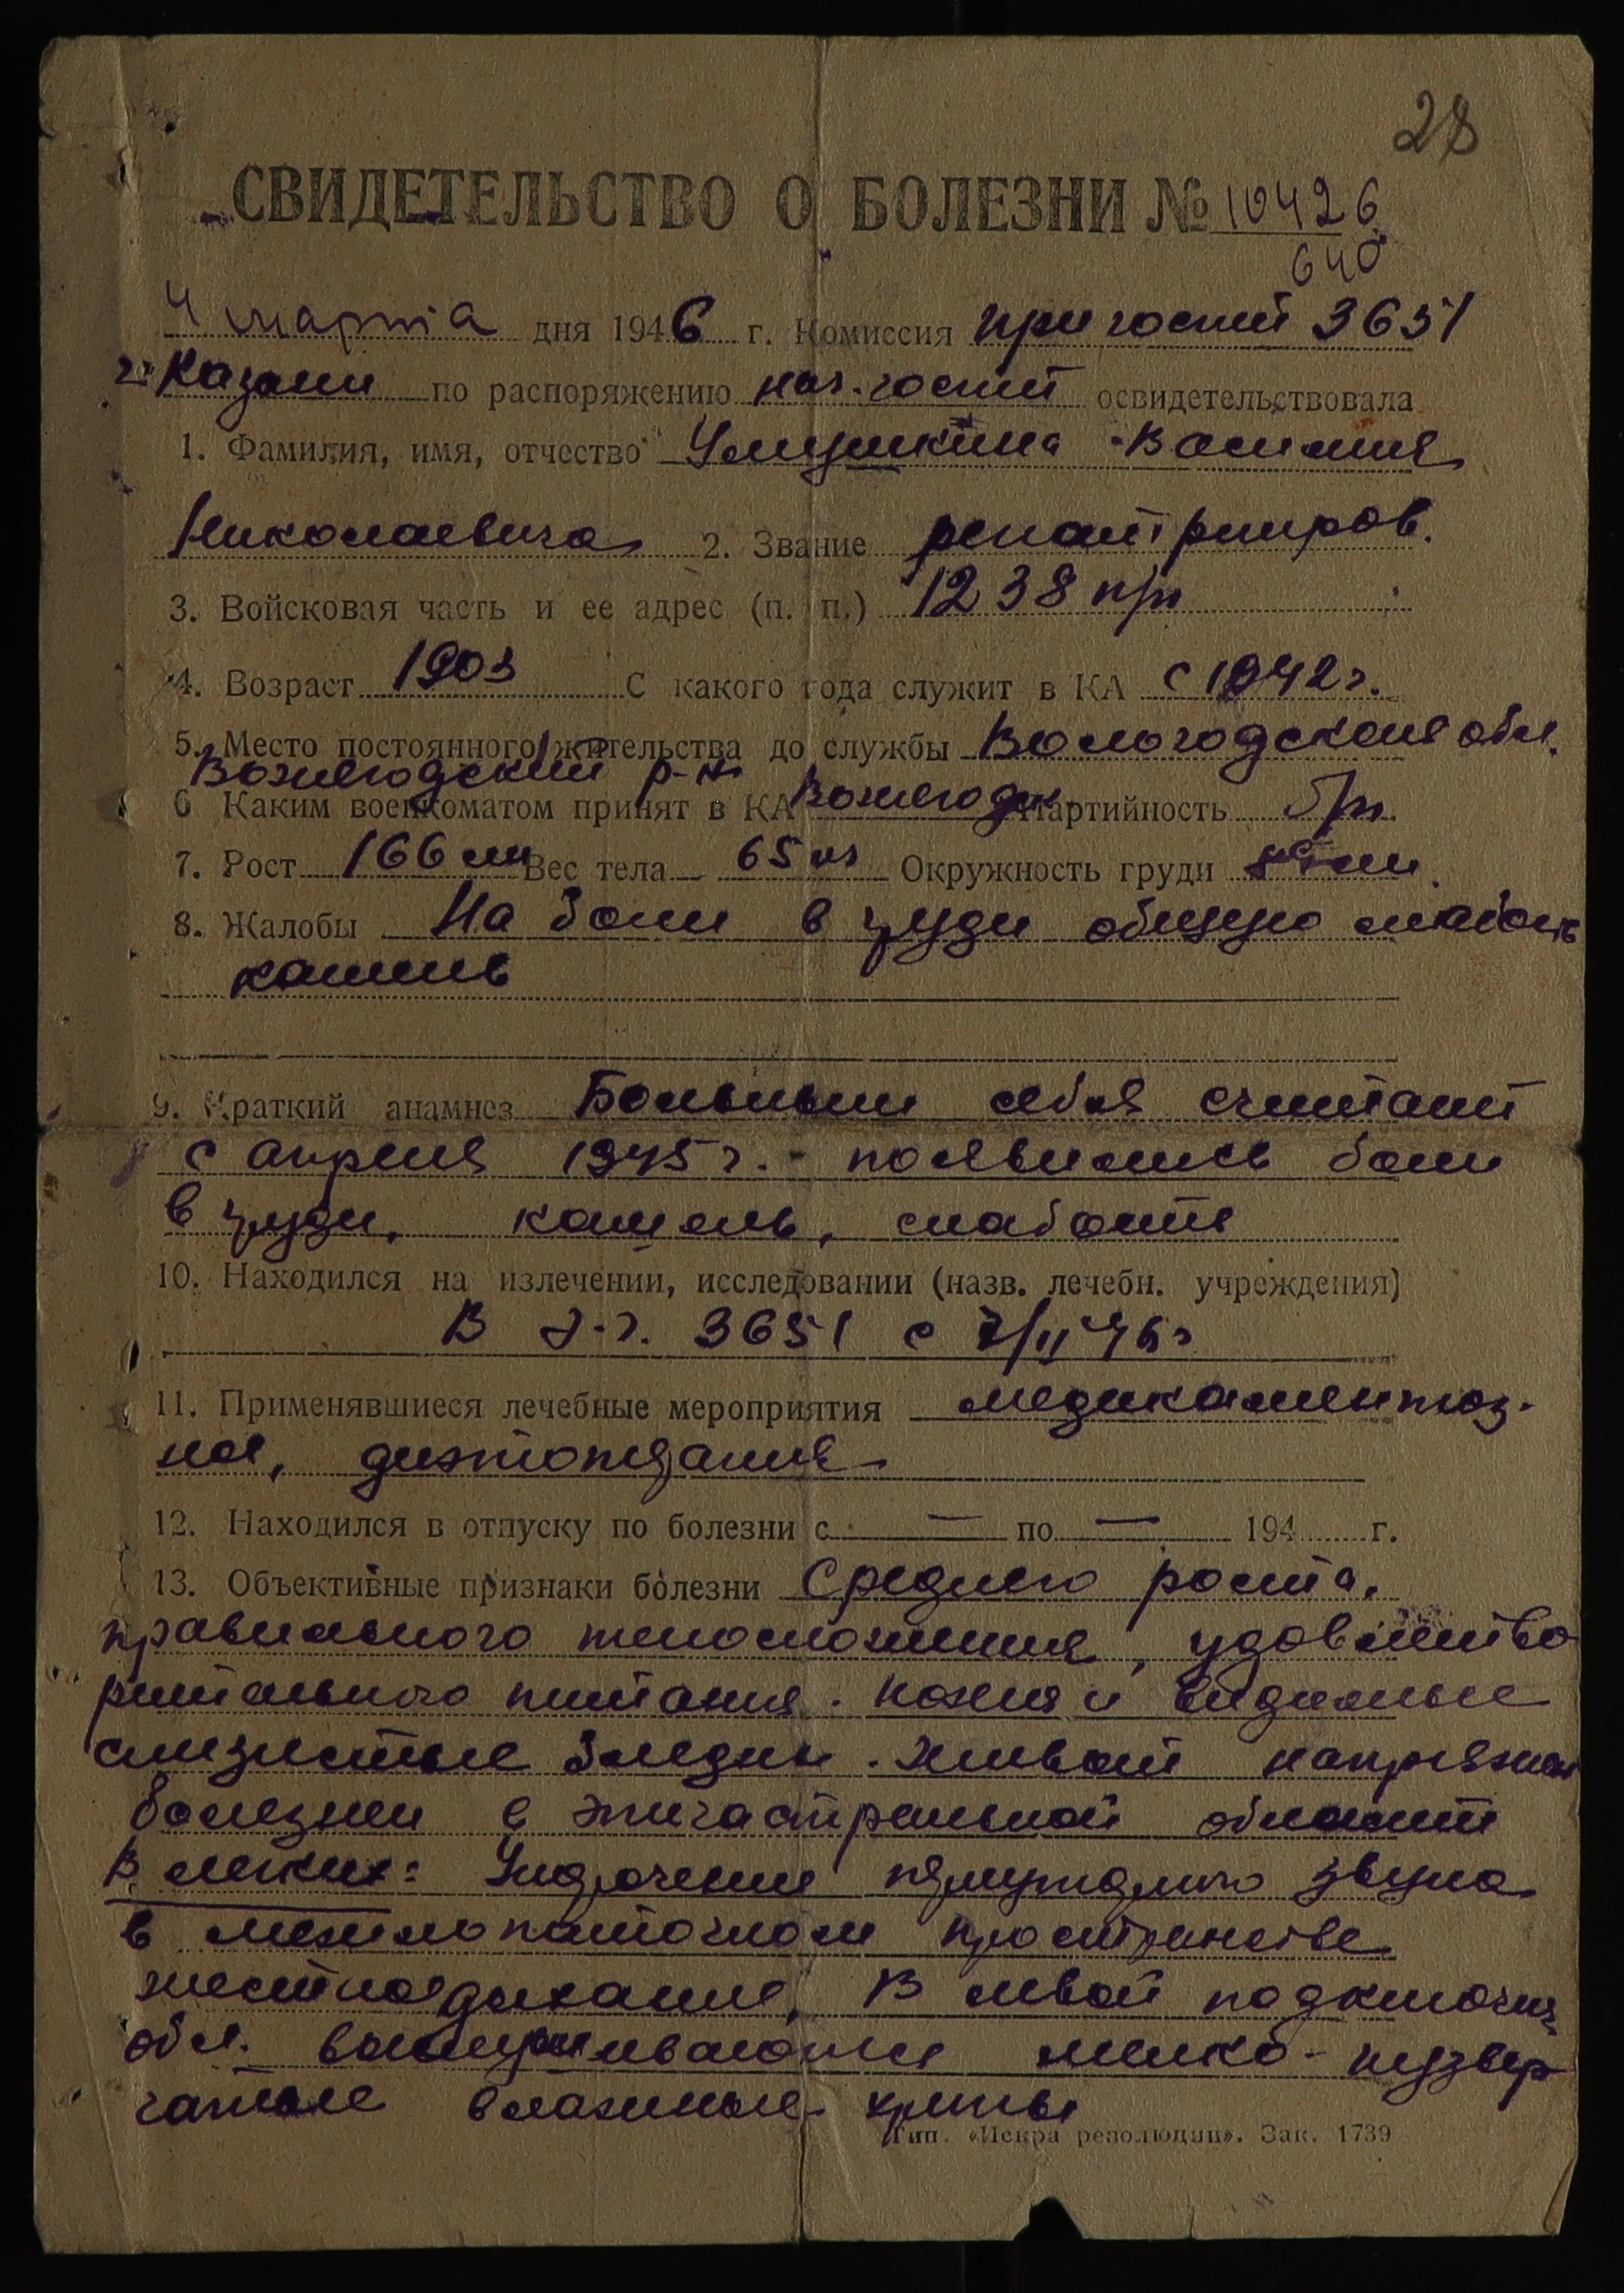 28
СВИДЕТЕЛЬСТВО О БОЛЕЗНИ № 10426
640
4 марта дня 1946 г. Комиссия при госпит 3651
г. Казани по распоряжению нач. госпит освидетельствовала
1. Фамилия, имя, отчество Василия
Николаевича 2. Звание репатрииров.
3. Войсковая часть и ее адрес (п. п.) 1238 п/п
4. Возраст 1903 С какого года служит в КА с 1942 г.
5. Место постоянного жительства до службы Вологодская обл.
Вожегодский р-н
6 Каким военкоматом принят в КА Вожегодск. Партийность б/п.
7. Рост 166 см Вес тела 65 кг Окружность груди см.
8. Жалобы На боли в груди общую слабость
кашель
9. Краткий анамнез Больным себя считает
с апреля 1945 г. - появились боли
в груди, кашель, слабость
10. Находился на излечении, исследовании (назв. лечебн. учреждения)
В э.г. 3651 с 7/II 46 г
11. Применявшиеся лечебные мероприятия медикаментоз-
ное, диэтопитание
12. Находился в отпуску по болезни с — по — 194 г.
13. Объективные признаки болезни Среднего роста,
правильного телосложения, удовлетво
рительного питания. Кожня и видимые
слизистые бледны. Живот напряжен
болезнен в эпигастральной области
В легких: Укорочение перкуторного звука
в межлопаточном пространстве
жесткое дыхание, В левой подключич.
обл. выслушиваются мелко-пузыр
чатые влажные хрипы
Тип. «Искра революции». Зак. 1739